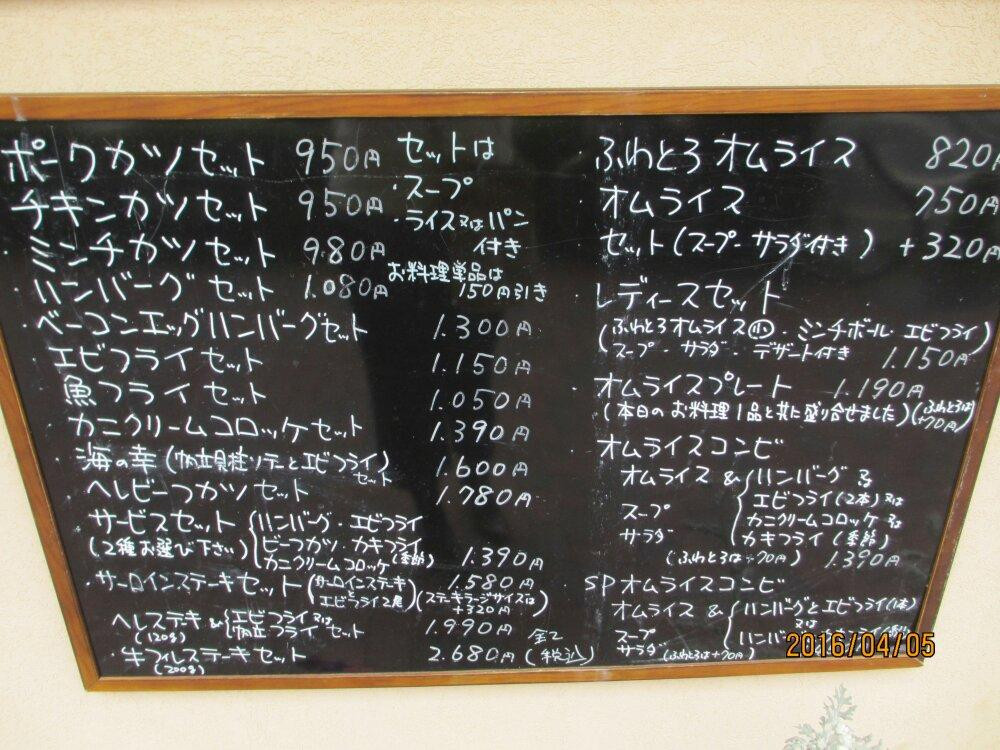 ポークカツセット 950円
チキンカツセット 950円
・ミンチカツセット 980円
・ハンバーグセット 1.080円
・ベーコンエッグハンバーグセット 1.300円
・エビフライセット 1.150円
魚フライセット 1.050円
・カニクリームコロッケセット 1.390円
・海の幸(帆立貝柱ソテーとエビフライ)セット 1.600円
・ヘレビーフカツセット 1.780円
サービスセット
(2種お選び下さい)
ハンバーグ・エビフライ
ビーフカツ・カキフライ(季節)
カニクリームコロッケ 1.390円
・サーロインステーキセット(サーロインステーキとエビフライ2尾) 1.580円
(ステーキラージサイズは+320円)
ヘレステキ&
(120g)
エビフライ又は
帆立フライセット 1.990円
・牛フィレステーキセット 2.680円
(200g)
全て(税込)
セットは
・スープ
・ライス又はパン
付き
お料理単品は
150円引き
・ふわとろオムライス 820円
・オムライス 750円
セット(スープ・サラダ付き) +320円
・レディースセット
(ふわとろオムライス小・ミンチボール・エビフライ)
スープ・サラダ・デザート付き 1.150円
・オムライスプレート 1.190円
(本日のお料理1品と共に盛り合せました)(ふわとろは+70円)
・オムライスコンビ
オムライス&
スープ
サラダ
ハンバーグ又は
エビフライ(2本)又は
カニクリームコロッケ又は
カキフライ(季節)
(ふわとろは+70円) 1.390円
・SPオムライスコンビ
オムライス&
スープ
サラダ
ハンバーグとエビフライ(1本)
又は
(ふわとろは+70円)
2016/04/05